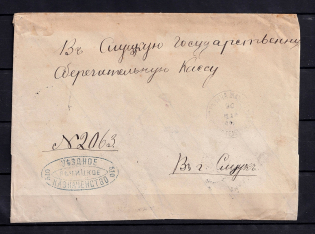 Въ Слуцкую Государственную
Сберегательную Кассу
№2063
Въ г. Слуцкъ
УѢЗДНОЕ
КАЗНАЧЕЙСТВО